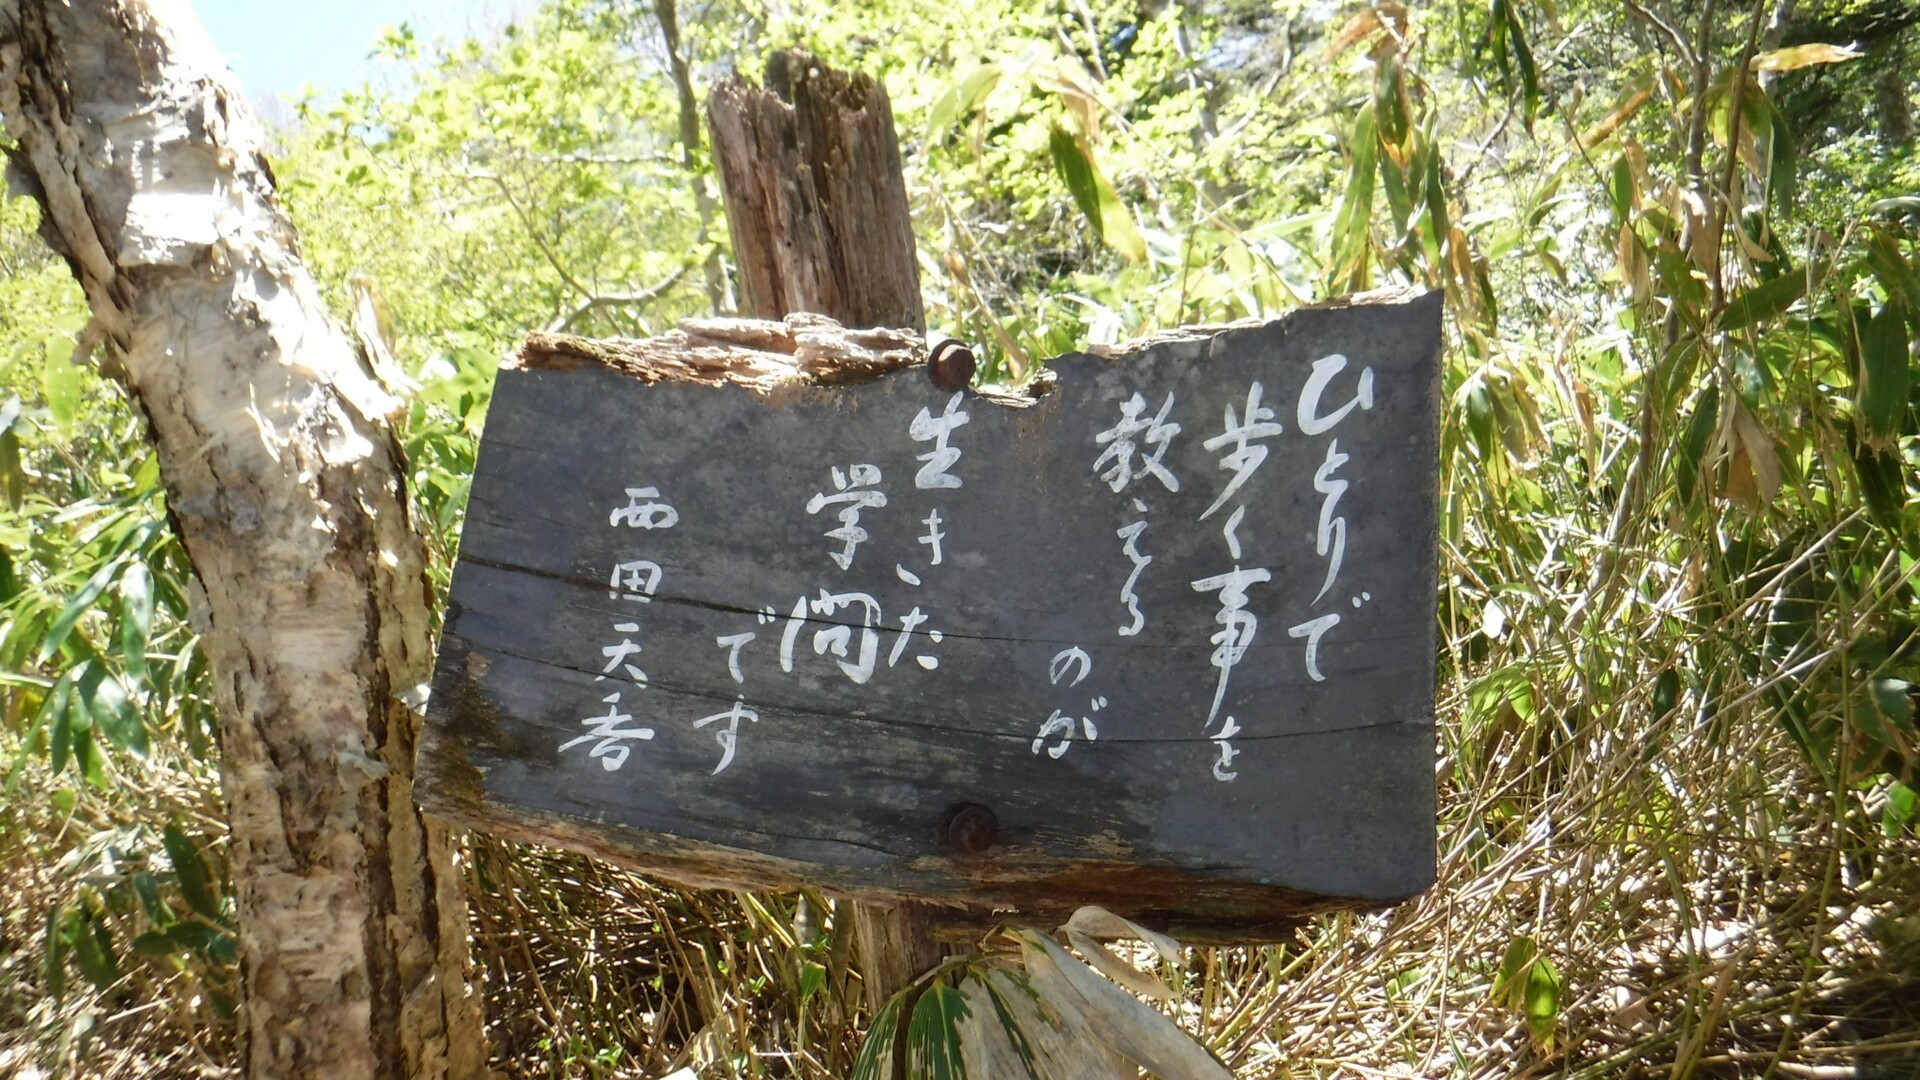 ひとりで
歩く事を
教える
のが
生きた
学問
です
西田天香